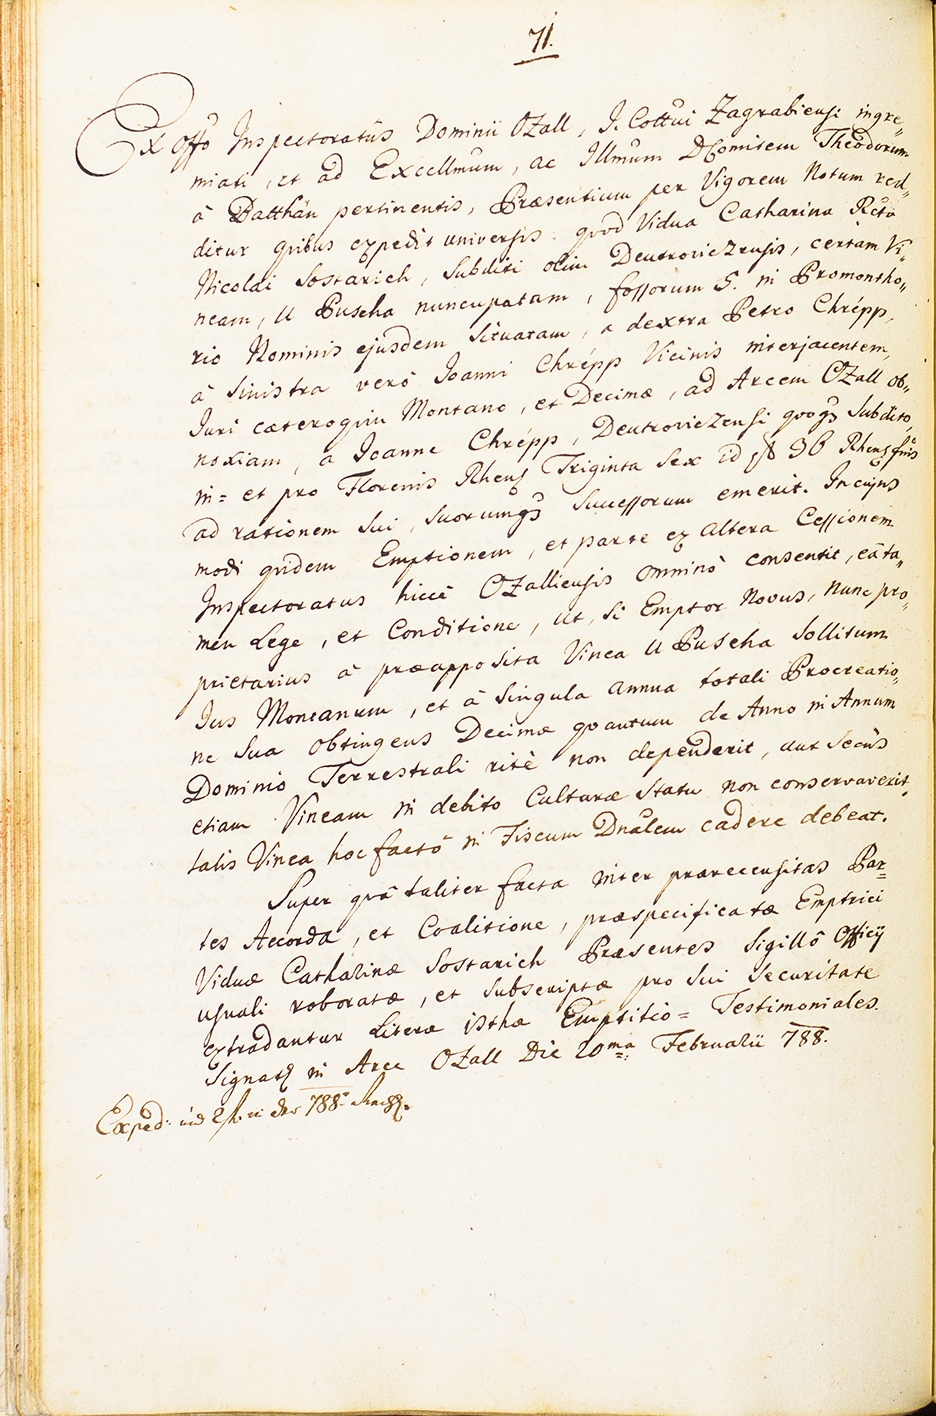 71.
Ex offo Inspectoratûs Dominii OZall, I. Cottui Zagrabiensi ingre„
miati, et ad Excellmum, ac Illmum D Comitem Theodorum
â Batthán pertinentis, Præsentium per Vigorem Notum red„
ditur quibus expedit universis: quod Vidua Catharina Rcta
Nicolai Sostarich, Subditi olim DeutrovicZensis, certam Vi„
neam, U Puscha nuncupatam, fossorum 5. in Promontho„
rio Nominis ejusdem Situatam, a dextra Petro Chrépp,
â Sinistra verò Joanni Chrépp Vicinis interjacentem,
Juri cæteroquin Montano, et Decimæ, ad Arcem OZall ob„
noxiam, a Joanne Chrépp, DeutrovicZensi quoq3 Subdito,
in= et pro Florenis Rhens Triginta Sex id f 36 Rhens finis
ad rationem Sui, Suorumq3 Successorum emerit. In cujus
modi quidem Emptionem, et parte ex altera Cessionem
Inspectoratus hicce OZalliensis omninò consentit, eâ ta„
men Lege, et Conditione, ut, Si Emptor Novus, nunc pro„
prietarius â præapposita Vinea U Puscha Sollitum
Jus Montanum, et â Singula annua totali Procreatio„
ne Sua obtingens Decimæ quantum de Anno in Annum
Dominio Terrestrali ritè non dependerit, aut Secùs
etiam Vineam in debito Culturæ Statu non conservaverit,
talis Vinea hoc factô in Fiscum Dnâlem cadere debeat.
Super quâ taliter facta inter prærecensitas Par=
tes Accorda, et Coalitione, præspecificatæ Emptrici
Viduæ Catharinæ Sostarich Præsentes Sigillô Officij
usuali roboratæ, et Subscriptæ pro Sui Securitate
extradantur Literæ isthæ Emptitio= Testimoniales.
Signat in Arce OZall Die 20ma Februarii 788.
Exped: